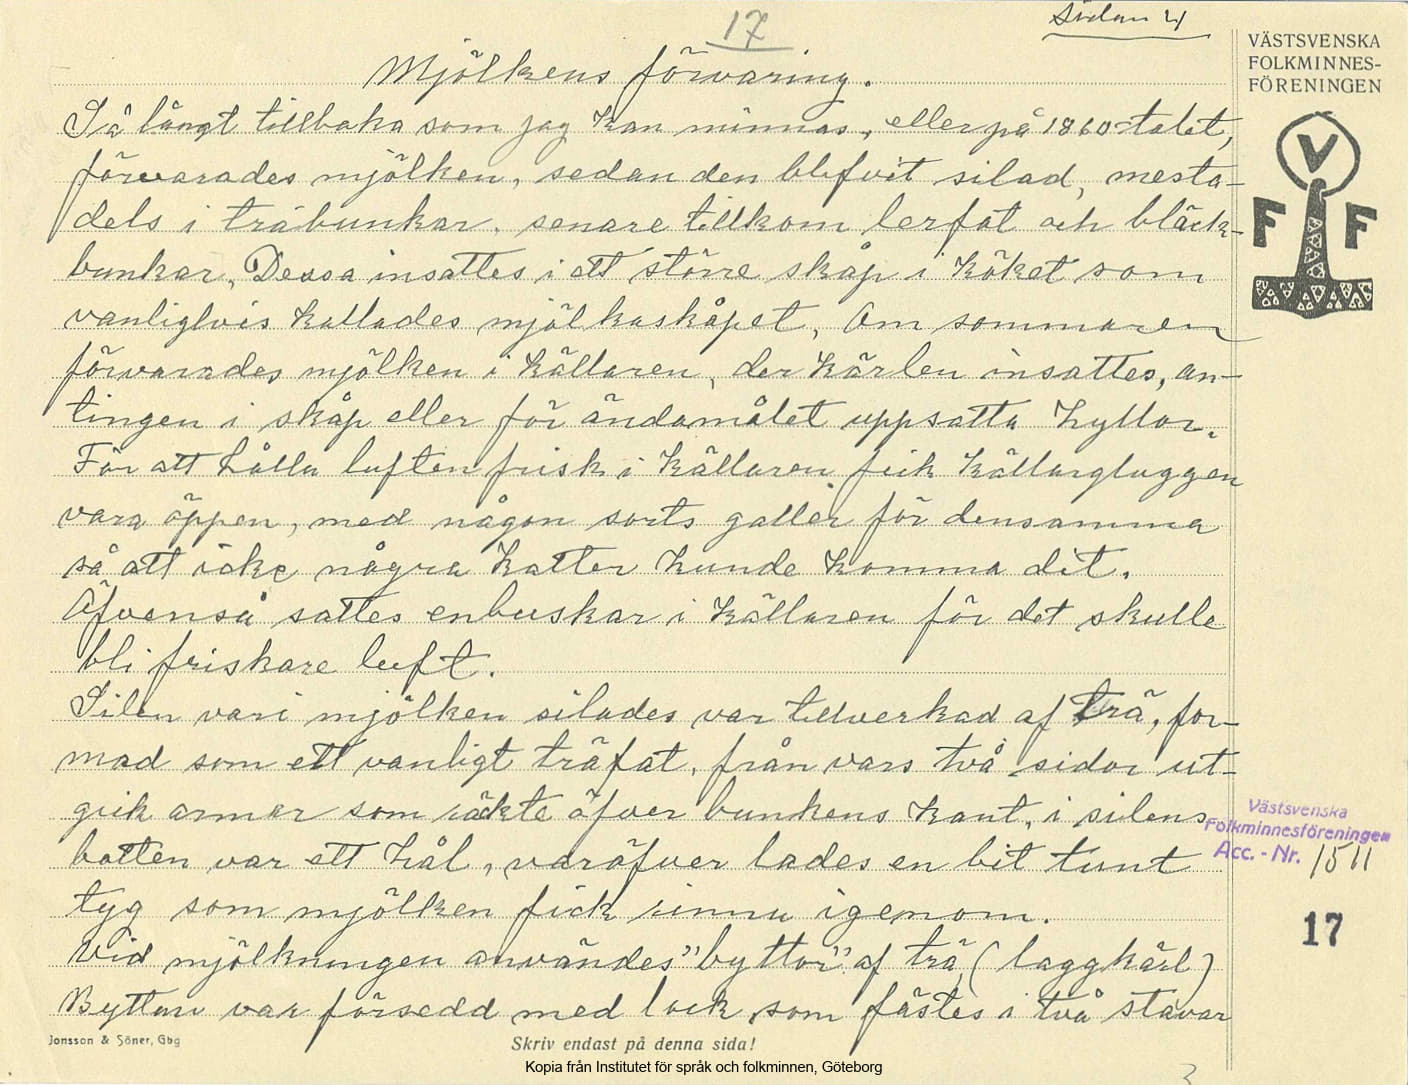 17
Sidan 4
VÄSTSVENSKA
FOLKMINNES-
FÖRENINGEN
V
F F
Mjölkens förvaring.
Så långt tillbaka som jag kan minnas, eller på 1860-talet,
förvarades mjölken, sedan den blifvit silad, mesta-
dels i träbunkar. senare tillkom lerfat och bläck-
bunkar, Dessa insattes i ett större skåp i köket som
vanligtvis kallades mjölkaskåpet, Om sommaren
förvarades mjölken i källaren, der kärlen insattes, an-
tingen i skåp eller för ändamålet uppsatta hyllor.
För att hålla luften frisk i källaren fick källargluggen
vara öppen, med någon sorts galler för densamma
så att icke några katter kunde komma dit.
Äfvenså sattes enbuskar i källaren för det skulle
bli friskare luft.
Silen vari mjölken silades var tillverkad af trä, for-
mad som ett vanligt träfat, från vars två sidor ut-
gick armar som räckte öfver bunkens kant, i silens
botten var ett hål, varöfver lades en bit tunt
tyg som mjölken fick rinna igenom.
Vid mjölkningen användes "byttor" af trä (laggkärl)
Byttan var försedd med lock som fästes i två stavar
Västsvenska
Folkminnesföreningen
Acc. - Nr. 1511
17
Jonsson & Söner, Gbg
Skriv endast på denna sida!
Kopia från Institutet för språk och folkminnen, Göteborg
3